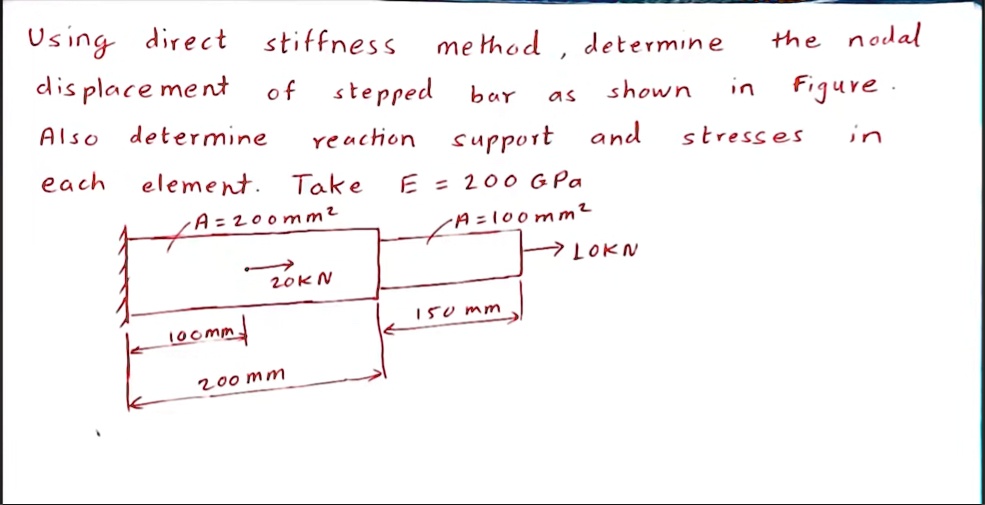 Using direct stiffness method, determine the nodal
displacement of stepped bar as shown in Figure.
Also determine reaction support and stresses in
each element. Take E = 200 GPa
A=200mm²
A=100mm²
20KN
10KN
100mm
150 mm
200 mm